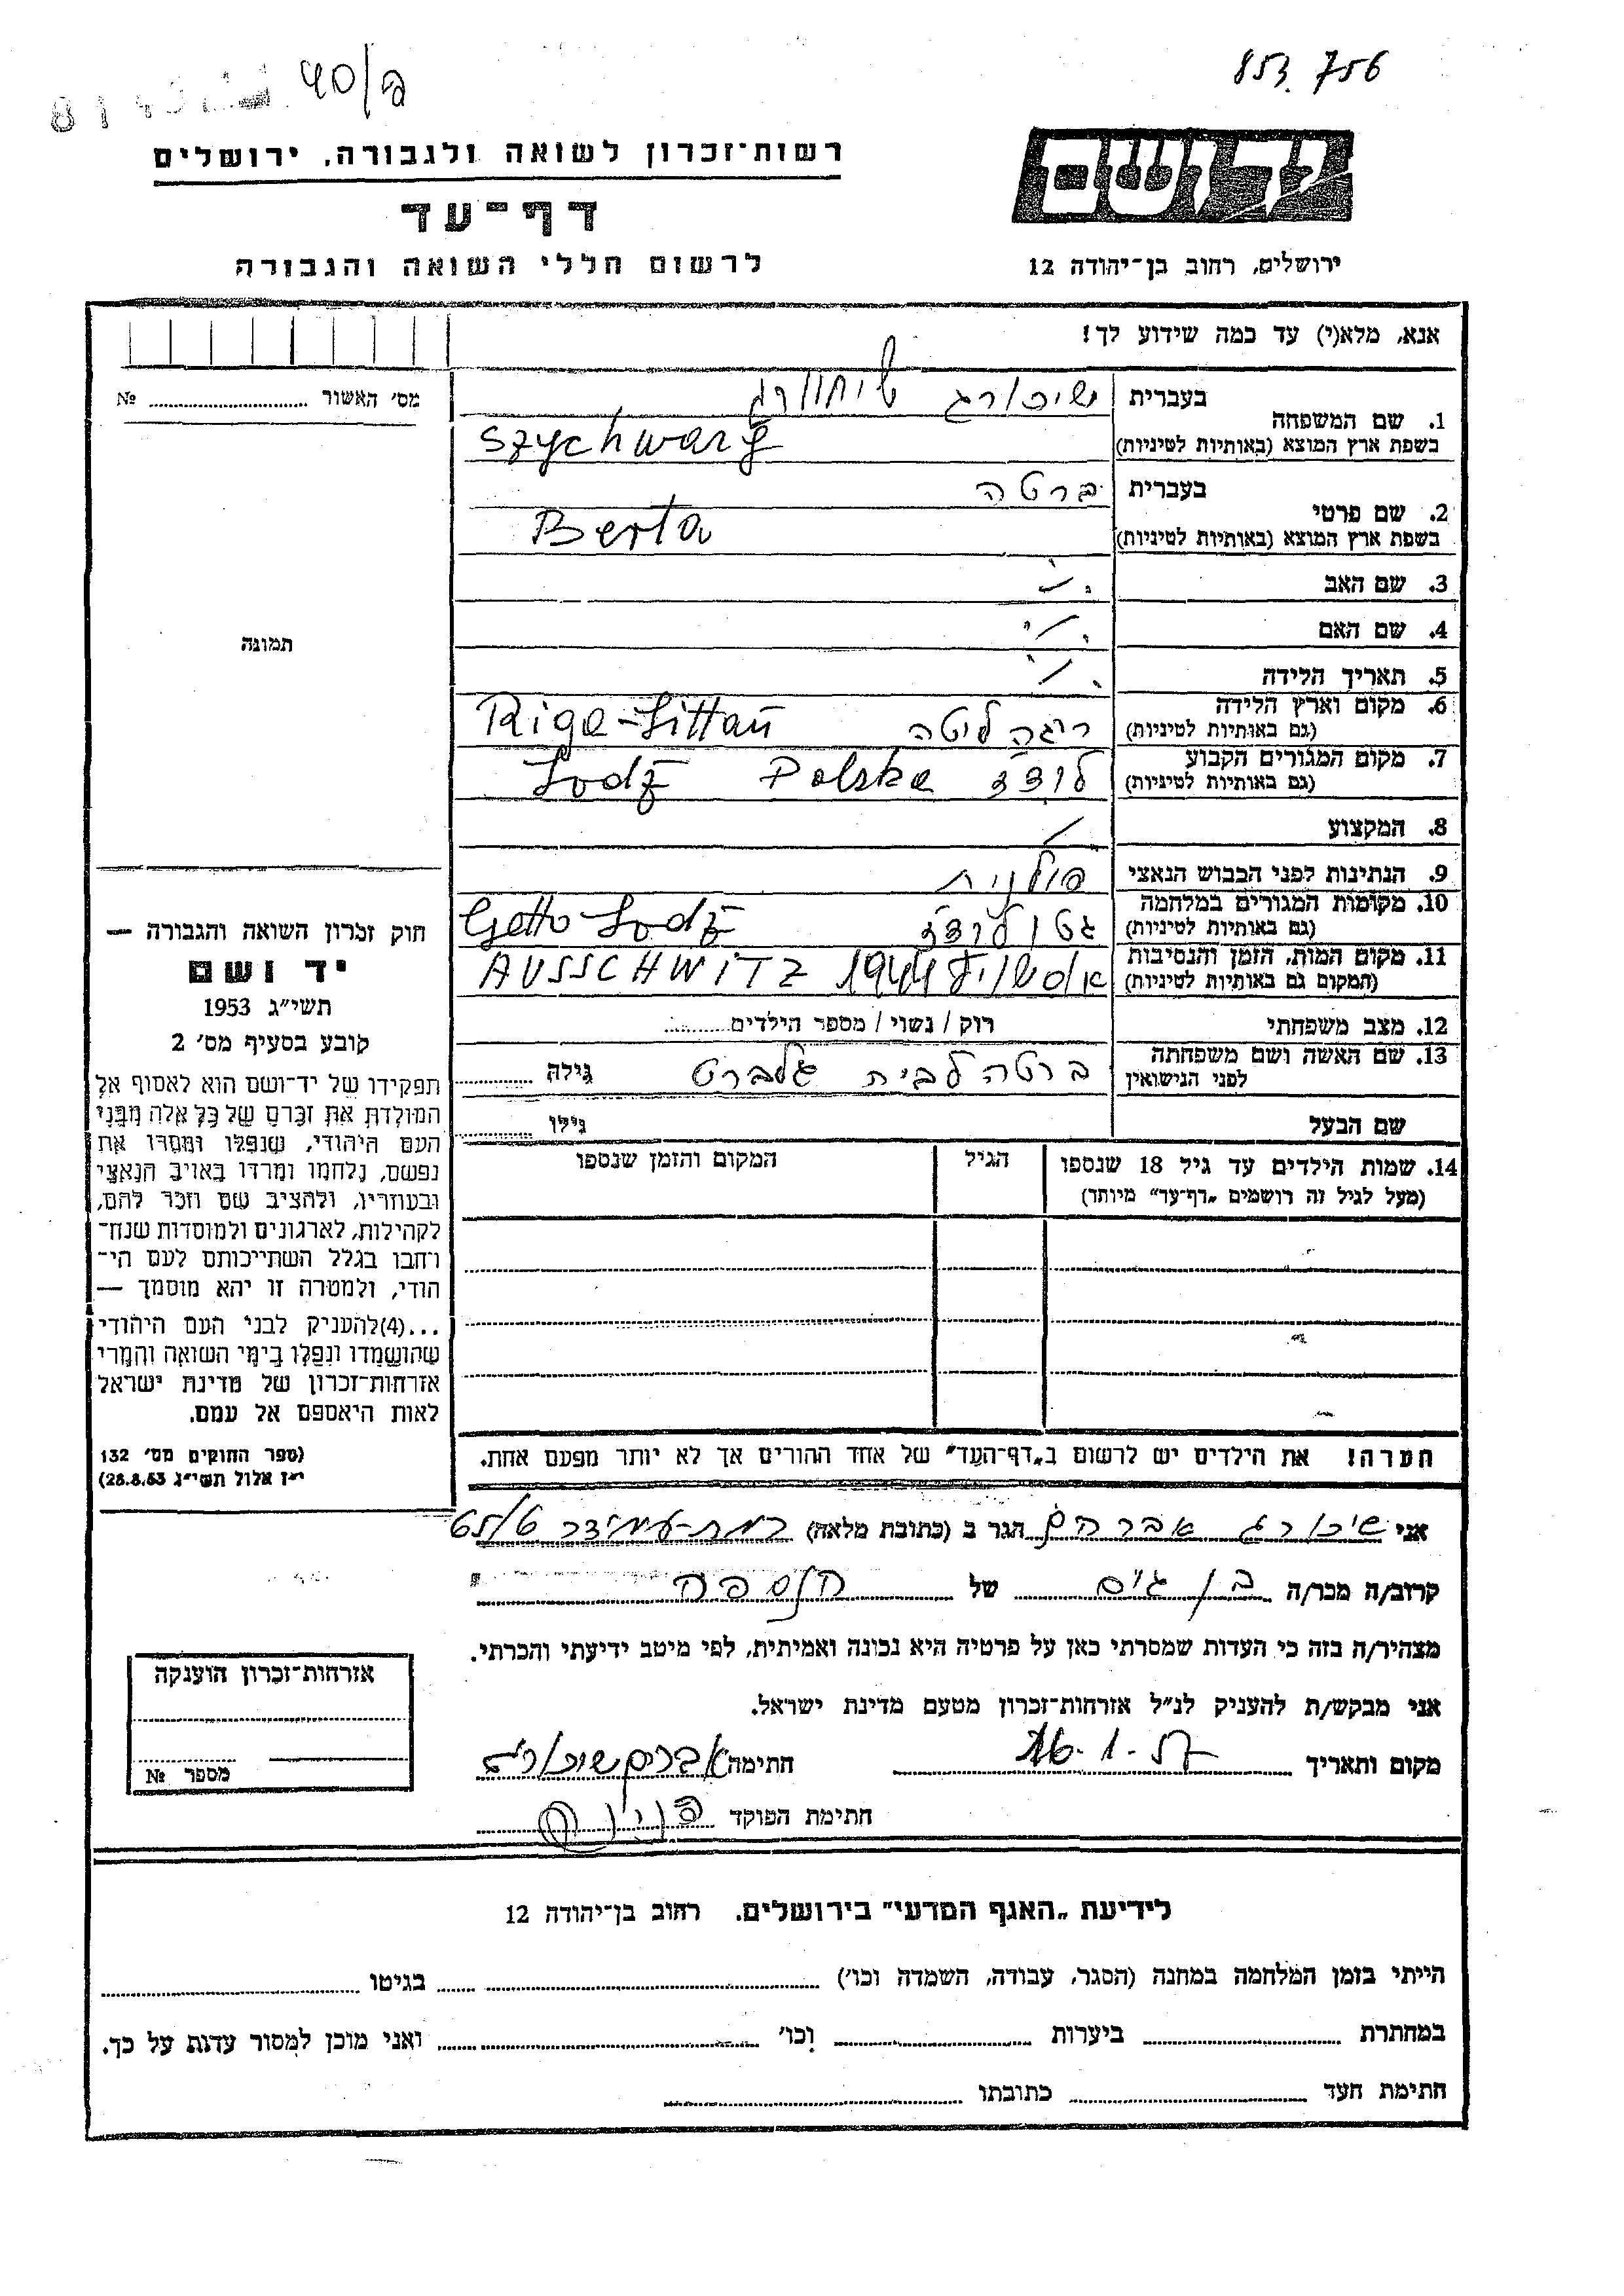 853.756
40/פ
יד ושם
רשות־זכרון לשואה ולגבורה, ירושלים
דף־עד
לרשום חללי השואה והגבורה
ירושלים, רחוב בן־יהודה 12
אנא, מלא(י) עד כמה שידוע לך!
מס׳ האשור № 
בעברית
1. שם המשפחה
בשפת ארץ המוצא (באותיות לטיניות)
Szychwarg
בעברית ברטה
2. שם פרטי
בשפת ארץ המוצא (באותיות לטיניות)
Berta
3. שם האב
4. שם האם
5. תאריך הלידה
6. מקום וארץ הלידה
(גם באותיות לטיניות)
ריגה ליטה Riga-Littau
7. מקום המגורים הקבוע
(גם באותיות לטיניות)
לודז Polska Lodz
8. המקצוע
9. הנתינות לפני הכבוש הנאצי פולנית
10. מקומות המגורים במלחמה
(גם באותיות לטיניות)
גטו לודז Getto Lodz
11. מקום המות, הזמן והנסיבות
(המקום גם באותיות לטיניות)
1944 AUSSCHWITZ
12. מצב משפחתי רוק / נשוי / מספר הילדים
13. שם האשה ושם משפחתה
לפני הנישואין
ברטה לבית גלברט גילה
שם הבעל גילו
14. שמות הילדים עד גיל 18 שנספו
(מעל לגיל זה רושמים „דף־עד״ מיוחד)
הגיל
המקום והזמן שנספו
הערה! את הילדים יש לרשום ב„דף־העד״ של אחד ההורים אך לא יותר מפעם אחת.
תמונה
חוק זכרון השואה והגבורה —
יד ושם
תשי״ג 1953
קובע בסעיף מס׳ 2
תפקידו של יד־ושם הוא לאסוף אל
המולדת את זכרם של כל אלה מבני
העם היהודי, שנפלו ומסרו את
נפשם, נלחמו ומרדו באויב הנאצי
ובעוזריו, ולהציב שם וזכר להם,
לקהילות, לארגונים ולמוסדות שנח־
רבו בגלל השתייכותם לעם הי־
הודי, ולמטרה זו יהא מוסמך —
...(4)להעניק לבני העם היהודי
שהושמדו ונפלו בימי השואה והמרי
אזרחות־זכרון של מדינת ישראל
לאות היאספם אל עמם.
(ספר החוקים מס׳ 132
י״ז אלול תשי״ג 28.8.53)
אני אברהם הגר ב (כתובת מלאה)
קרוב/ה מכר/ה של הנספה
מצהיר/ה בזה כי העדות שמסרתי כאן על פרטיה היא נכונה ואמיתית, לפי מיטב ידיעתי והכרתי.
אני מבקש/ת להעניק לנ״ל אזרחות־זכרון מטעם מדינת ישראל.
מקום ותאריך חתימה
חתימת הפוקד
אזרחות־זכרון הוענקה
מספר №
לידיעת „האגף המדעי״ בירושלים. רחוב בן־יהודה 12
הייתי בזמן המלחמה במחנה (הסגר, עבודה, השמדה וכו׳) בגיטו
במחתרת ביערות וכו׳ ואני מוכן למסור עדות על כך.
חתימת העד כתובתו